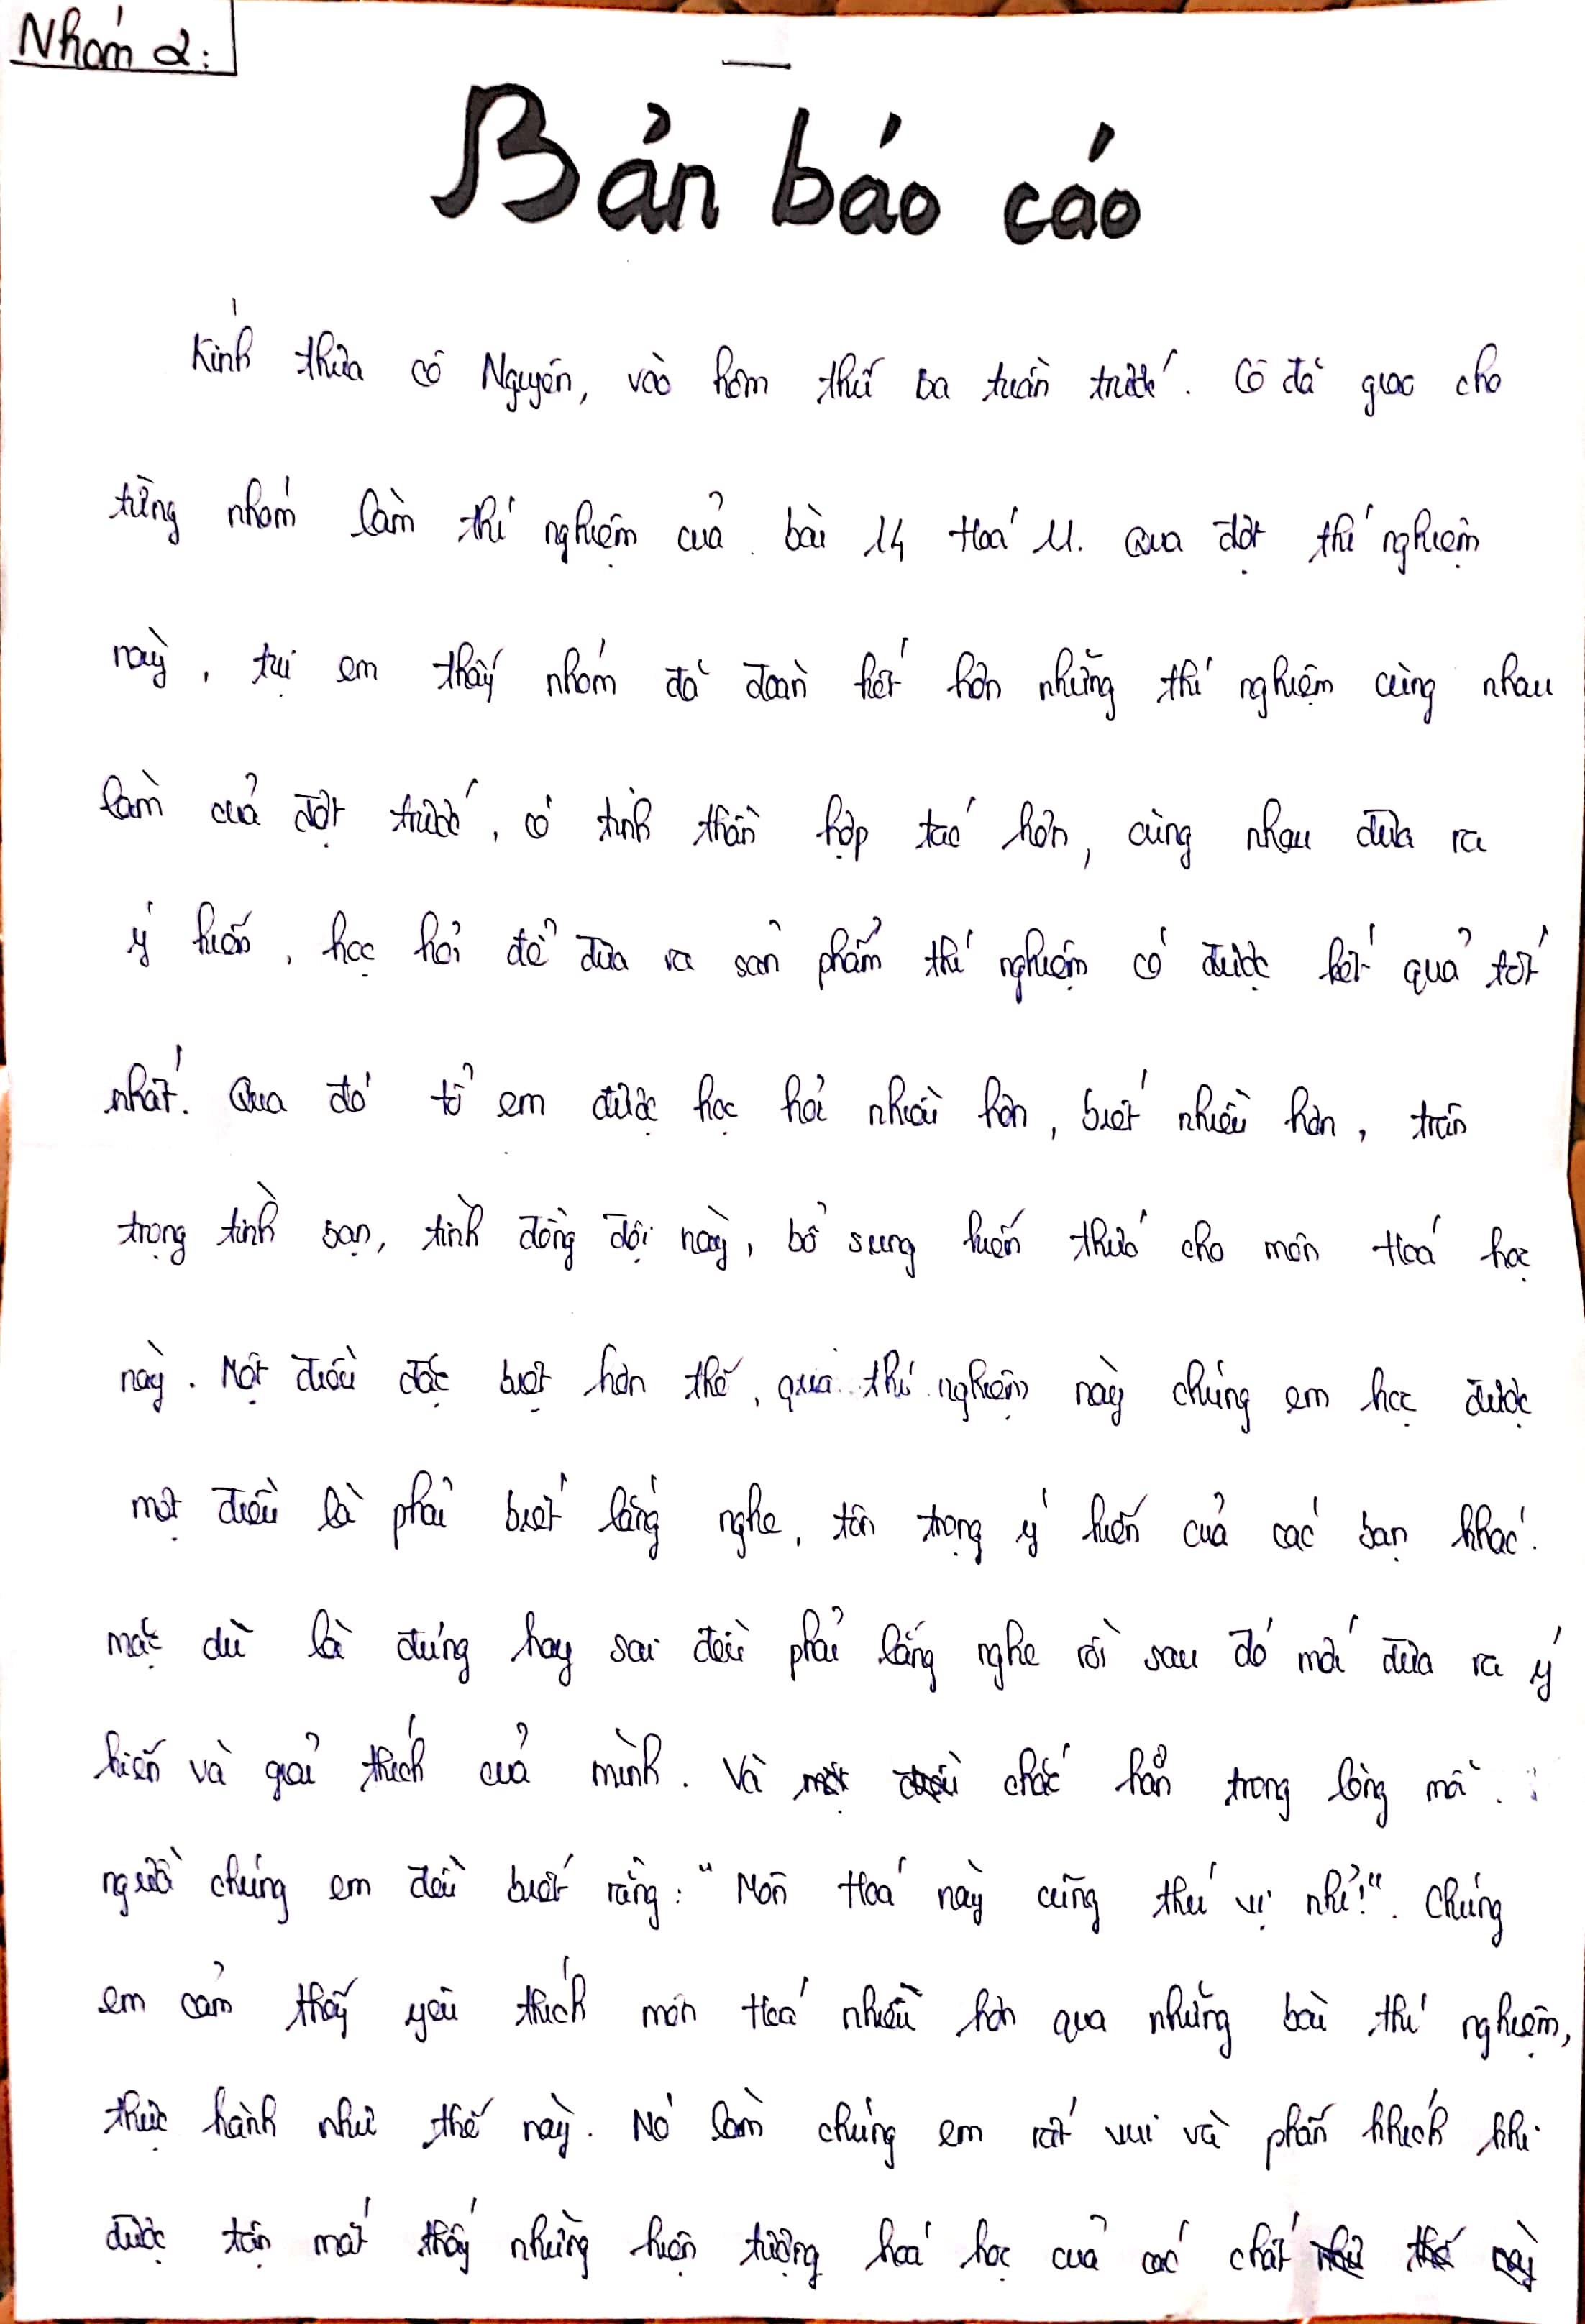 Nhóm 2:
Bản báo cáo
Kính thưa cô Nguyên, vào hôm thứ ba tuần trước. Cô đã giao cho
từng nhóm làm thí nghiệm của bài 14 Hoá 11. Qua đợt thí nghiệm
này, tụi em thấy nhóm đã đoàn kết hơn những thí nghiệm cùng nhau
làm của đợt trước, có tinh thần hợp tác hơn, cùng nhau đưa ra
ý kiến, học hỏi để đưa ra sản phẩm thí nghiệm có được kết quả tốt
nhất. Qua đó tổ em được học hỏi nhiều hơn, biết nhiều hơn, trân
trọng tình bạn, tình đồng đội này, bổ sung kiến thức cho môn Hoá học
này. Một điều đặc biệt hơn thế, qua thí nghiệm này chúng em học được
một điều là phải biết lắng nghe, tôn trọng ý kiến của các bạn khác.
mặc dù là đúng hay sai đều phải lắng nghe rồi sau đó mới đưa ra ý
kiến và giải thích của mình. Và chắc hẳn trong lòng mỗi
người chúng em đều biết rằng: "Môn Hoá này cũng thú vị nhỉ!". Chúng
em cảm thấy yêu thích môn Hoá nhiều hơn qua những bài thí nghiệm,
thực hành như thế này. Nó làm chúng em rất vui và phấn khích khi
được tận mắt thấy những hiện tượng hoá học của các chất